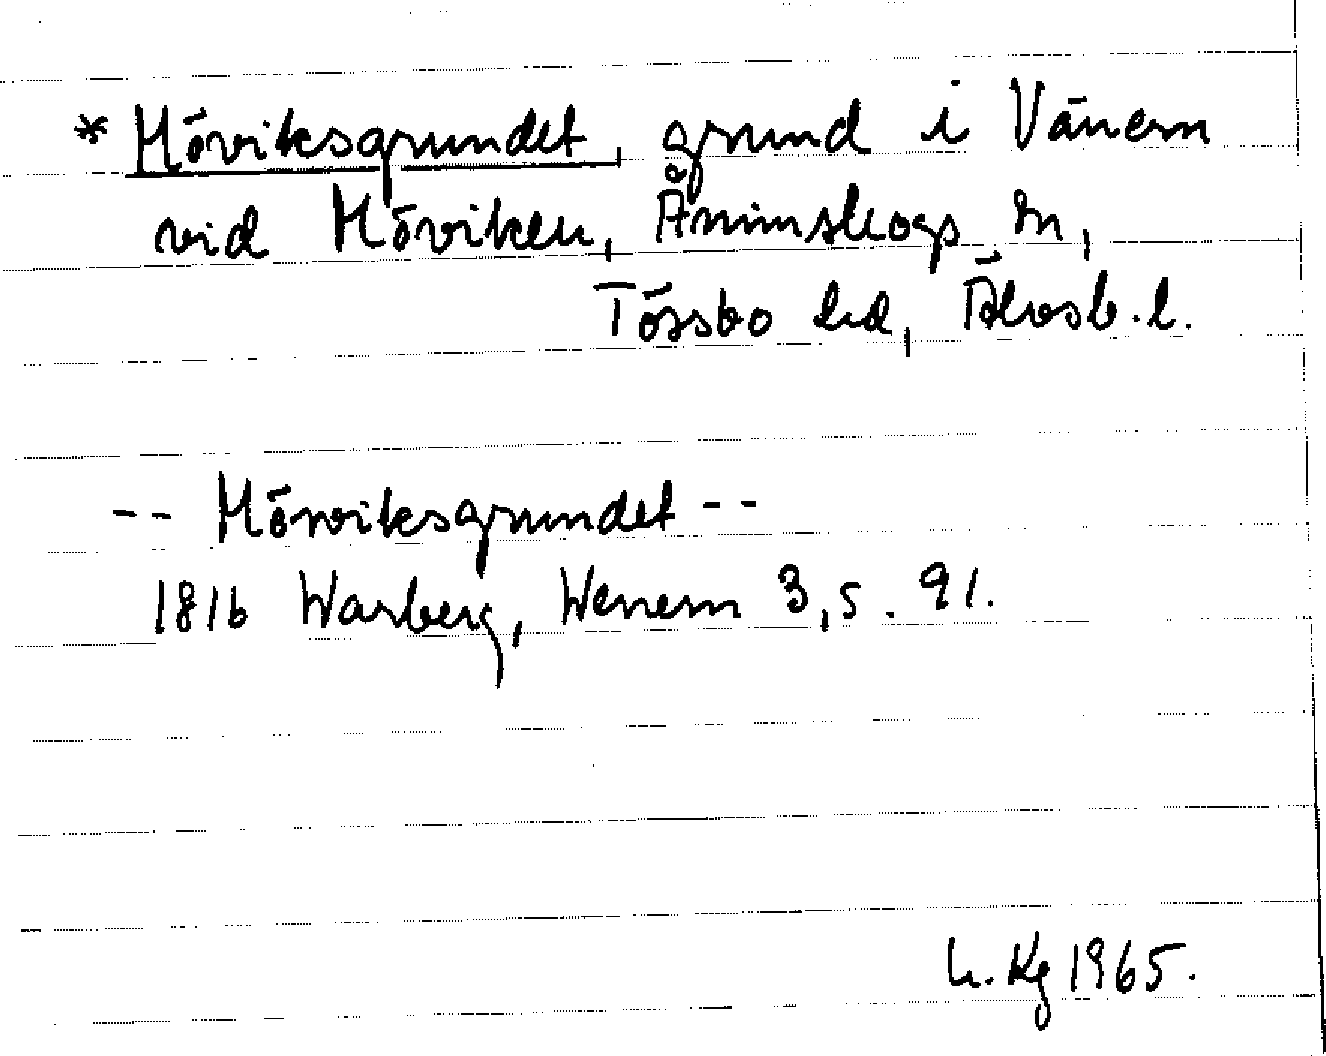 *Höviksgrundet, grund i Vänern
vid Höviken, Ånimskogs sn,
Tössbo hd, Älvsb. l.
-- Hörviksgrundet --
1816 Warberg, Wenern 3, s. 91.
Kg 1965.